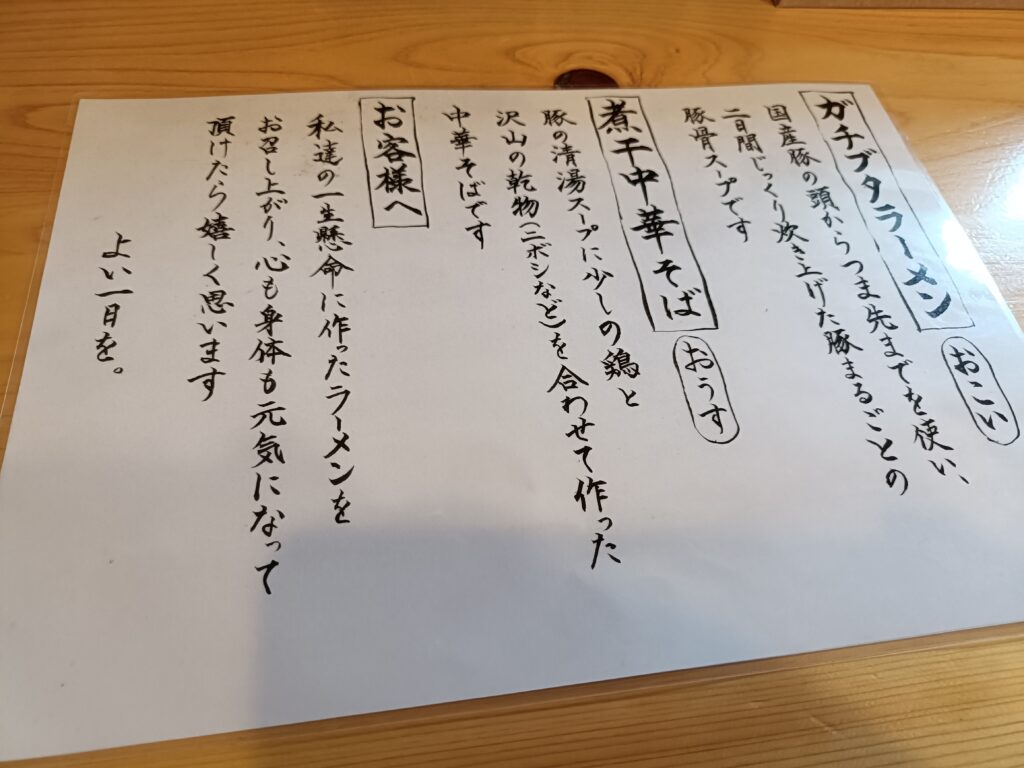 ガチブタラーメン
おこい
国産豚の頭からつま先までを使い、
二日間じっくり炊き上げた豚まるごとの
豚骨スープです
煮干中華そば
おうす
豚の清湯スープに少しの鶏と
沢山の乾物(ニボシなど)を合わせて作った
中華そばです
お客様へ
私達の一生懸命に作ったラーメンを
お召し上がり、心も身体も元気になって
頂けたら嬉しく思います
よい一日を。